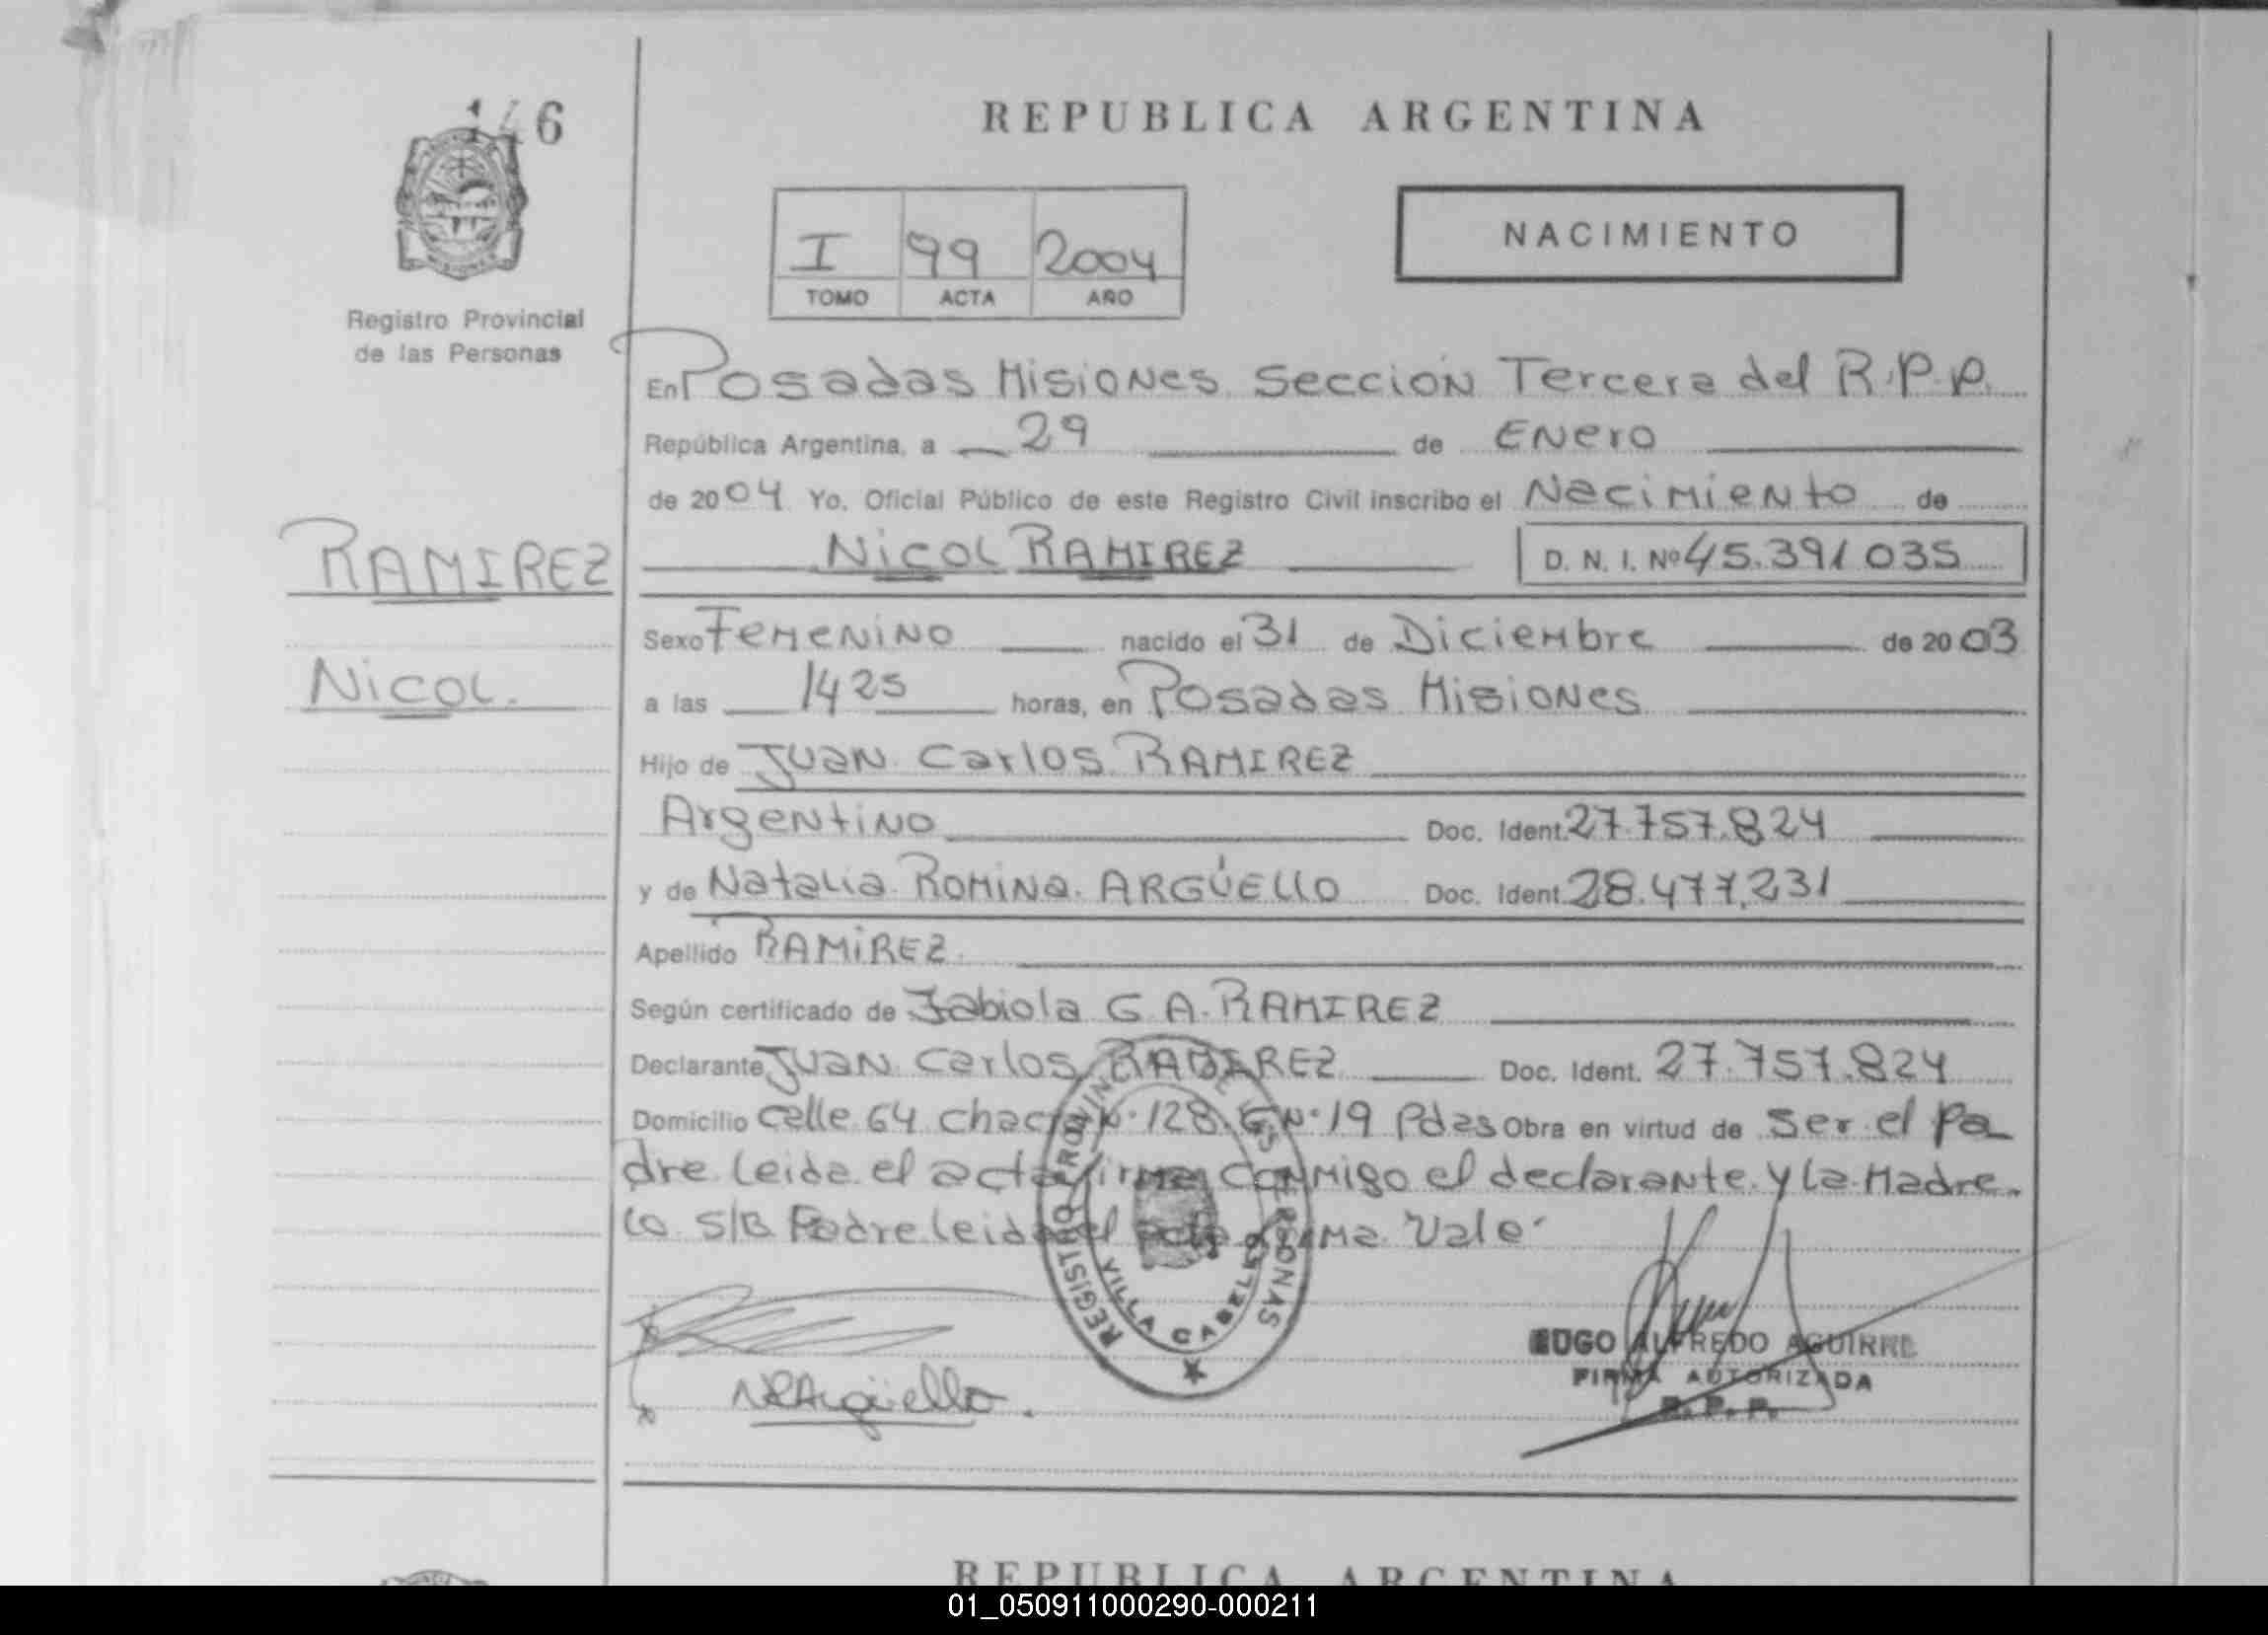 146
REPUBLICA ARGENTINA
I 99 2004
TOMO ACTA AÑO
NACIMIENTO
Registro Provincial
de las Personas
En Posadas Misiones Sección Tercera del R.P.P.
República Argentina, a 29 de Enero
de 2004 Yo, Oficial Público de este Registro Civil inscribo el Nacimiento de
Nicol RAMIREZ D. N. I. Nº 45.391.035
RAMIREZ
Nicol.
Sexo Femenino nacido el 31 de Diciembre de 2003
a las 1425 horas, en Posadas Misiones
Hijo de Juan Carlos RAMIREZ
Argentino Doc. Ident. 27.757.824
y de Natalia Romina ARGÜELLO Doc. Ident. 28.477.231
Apellido RAMIREZ
Según certificado de Fabiola G A. RAMIREZ
Declarante Juan Carlos RAMIREZ Doc. Ident. 27.757.824
Domicilio Calle 64 Chacra Nº 128 Nº 19 Pdas Obra en virtud de Ser el Pa
dre leida el acta firma conmigo el declarante y la Madre.
Lo S/B Padre leida el acta firma Vale
REGISTRO PROVINCIAL DE LAS PERSONAS
VILLA CABELLO
NRArgüello.
HUGO ALFREDO AGUIRRE
FIRMA AUTORIZADA
R. P. P.
REPUBLICA ARGENTINA
01_050911000290-000211